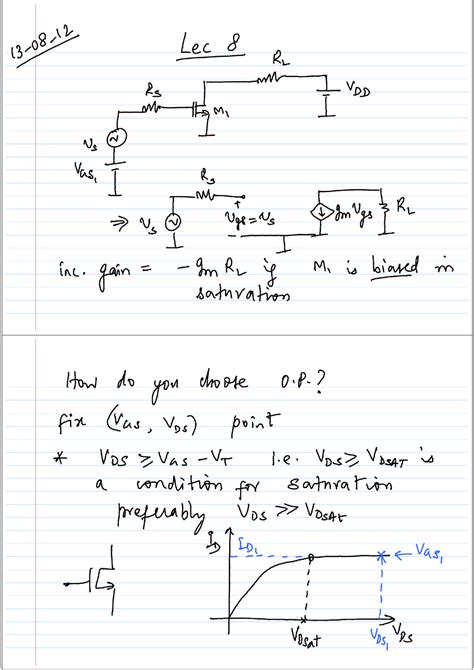 13-08-12
Lec 8
R_L
V_DD
R_s
M_1
v_s
V_GS_1
R_s
⇒ v_s
+
v_gs = v_s
-
g_m v_gs
R_L
inc. gain = - g_m R_L if M_1 is biased in
saturation
How do you choose O.P.?
fix (V_GS, V_DS) point
* V_DS ≥ V_GS - V_T i.e. V_DS ≥ V_DSAT is
a condition for saturation
preferably V_DS ≫ V_DSAT
I_D
I_D1
← V_GS_1
V_DSat
V_DS_1
V_DS